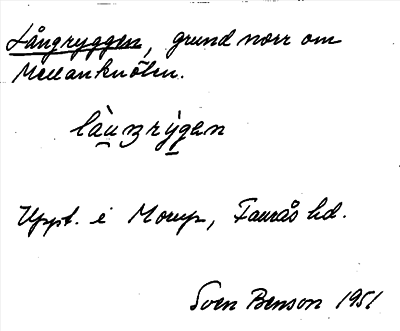 Långryggen, grund norr om
Mellanknölen.
làu̲ŋrỳgen
Uppt. i Morup, Faurås hd.
Sven Benson 1951